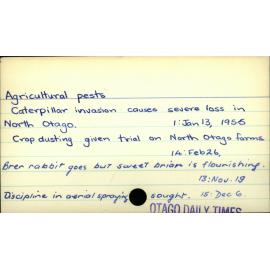 Agricultural pests
Caterpillar invasion causes severe loss in
North Otago. 1: Jan 13, 1955
Crop dusting given trial on North Otago farms
14: Feb 26,
Brer rabbit goes but sweet briar is flourishing.
13: Nov. 19
Discipline in aerial spraying sought. 15: Dec 6.
OTAGO DAILY TIMES